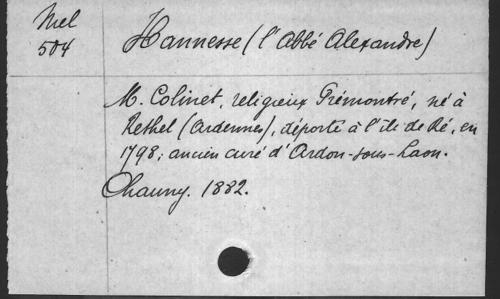 Mel
504
Hannesse (l'Abbé Alexandre)
M. Colinet, religieux Prémontré, né à
Rethel (Ardennes), déporté à l'île de Ré, en
1798; ancien curé d'Ardon-sous-Laon.
Chauny. 1882.